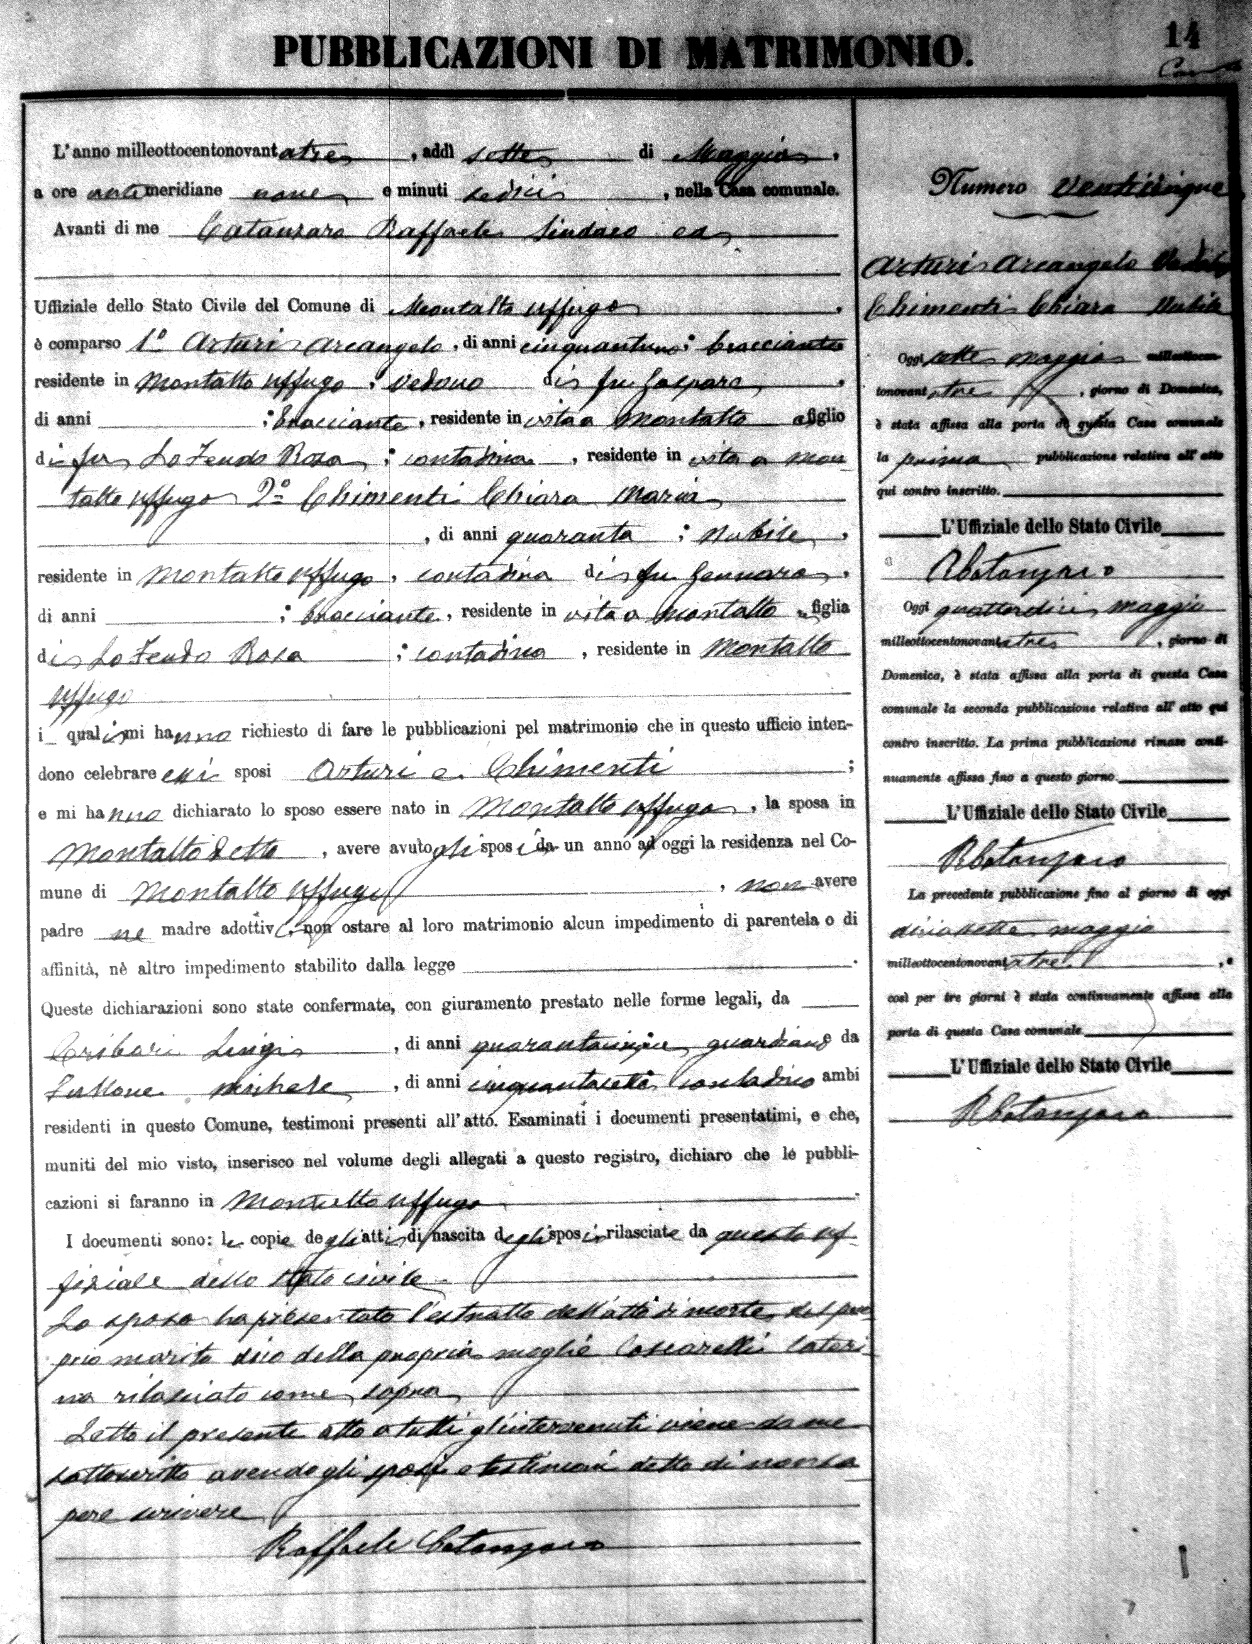 PUBBLICAZIONI DI MATRIMONIO.
14
L'anno milleottocentonovantatre, addì sette di Maggio,
a ore antemeridiane nove e minuti sedici, nella Casa comunale.
Avanti di me Catanzaro Raffaele Sindaco ed
Uffiziale dello Stato Civile del Comune di Montalto Uffugo.
è comparso 1º Arturi Arcangelo, di anni cinquantuno; bracciante
residente in Montalto Uffugo; vedovo di fu Gaspare,
di anni ; bracciante, residente in vita a Montalto e figlio
di fu Lo Feudo Rosa; contadina, residente in vita a Mon
talto Uffugo 2º Chimenti Chiara Maria
, di anni quaranta; Nubile,
residente in Montalto Uffugo, contadina di fu Gennaro,
di anni ; bracciante, residente in vita a Montalto figlia
di Lo Feudo Rosa; contadina, residente in Montalto
Uffugo
i quali mi hanno richiesto di fare le pubblicazioni pel matrimonio che in questo ufficio inten-
dono celebrare essi sposi Arturi e Chimenti;
e mi hanno dichiarato lo sposo essere nato in Montalto Uffugo, la sposa in
Montalto detto, avere avuto gli sposi da un anno ad oggi la residenza nel Co-
mune di Montalto Uffugo, non avere
padre ne madre adottivi, non ostare al loro matrimonio alcun impedimento di parentela o di
affinità, nè altro impedimento stabilito dalla legge .
Queste dichiarazioni sono state confermate, con giuramento prestato nelle forme legali, da
Cribari Luigi, di anni quarantacinque, guardiano da
michele, di anni cinquantasette contadino ambi
residenti in questo Comune, testimoni presenti all'atto. Esaminati i documenti presentatimi, e che,
muniti del mio visto, inserisco nel volume degli allegati a questo registro, dichiaro che le pubbli-
cazioni si faranno in Montalto Uffugo.
I documenti sono: le copie degli atti di nascita degli sposi rilasciate da questo uf
fiziale dello stato civile
Lo sposo ha presentato l'estratto dell'atto di morte del pro
prio marito dico della propria moglie Coscarelli Cateri
na rilasciato come sopra
Letto il presente atto a tutti gl'intervenuti viene da me
sottoscritto avendo gli sposi e testimoni detto di non sa
pere scrivere
Raffaele Catanzaro
Numero venticinque
Arturi Arcangelo Vedovo
Chimenti Chiara Nubile
Oggi sette maggio milleottocen-
tonovantatre, giorno di Domenica,
è stata affissa alla porta di questa Casa comunale
la prima pubblicazione relativa all'atto
qui contro inscritto.
L'Uffiziale dello Stato Civile
RCatanzaro
Oggi quattordici maggio
milleottocentonovantatre, giorno di
Domenica, è stata affissa alla porta di questa Casa
comunale la seconda pubblicazione relativa all'atto qui
contro inscritto. La prima pubblicazione rimase conti-
nuamente affissa fino a questo giorno.
L'Uffiziale dello Stato Civile
RCatanzaro
La precedente pubblicazione fino al giorno di oggi
diciasette maggio
milleottocentonovantatre, e
così per tre giorni è stata continuamente affissa alla
porta di questa Casa comunale.
L'Uffiziale dello Stato Civile
RCatanzaro